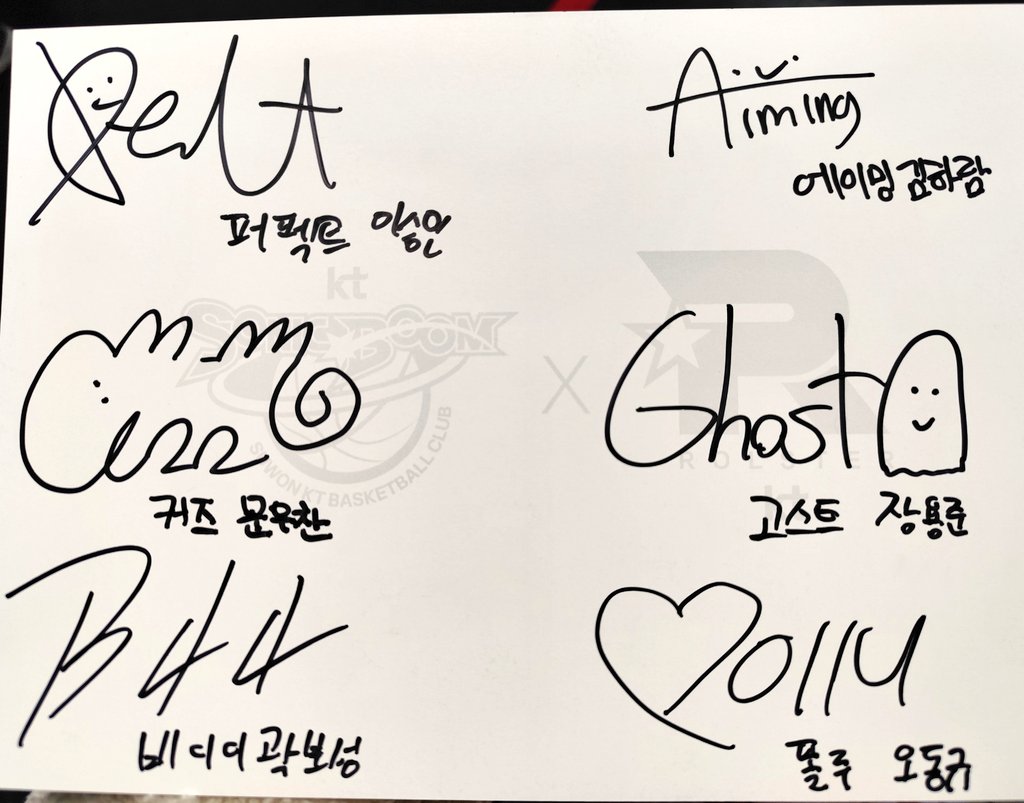 PerfecT
Aiming
에이밍 김하람
퍼펙트 이승민
kt
SONICBOOM
X
R
SUWON KT BASKETBALL CLUB
ROLSTER
kt
Cuzz
Ghost
커즈 문우찬
고스트 장용준
Bdd
Pollu
비디디 곽보성
폴루 오동규